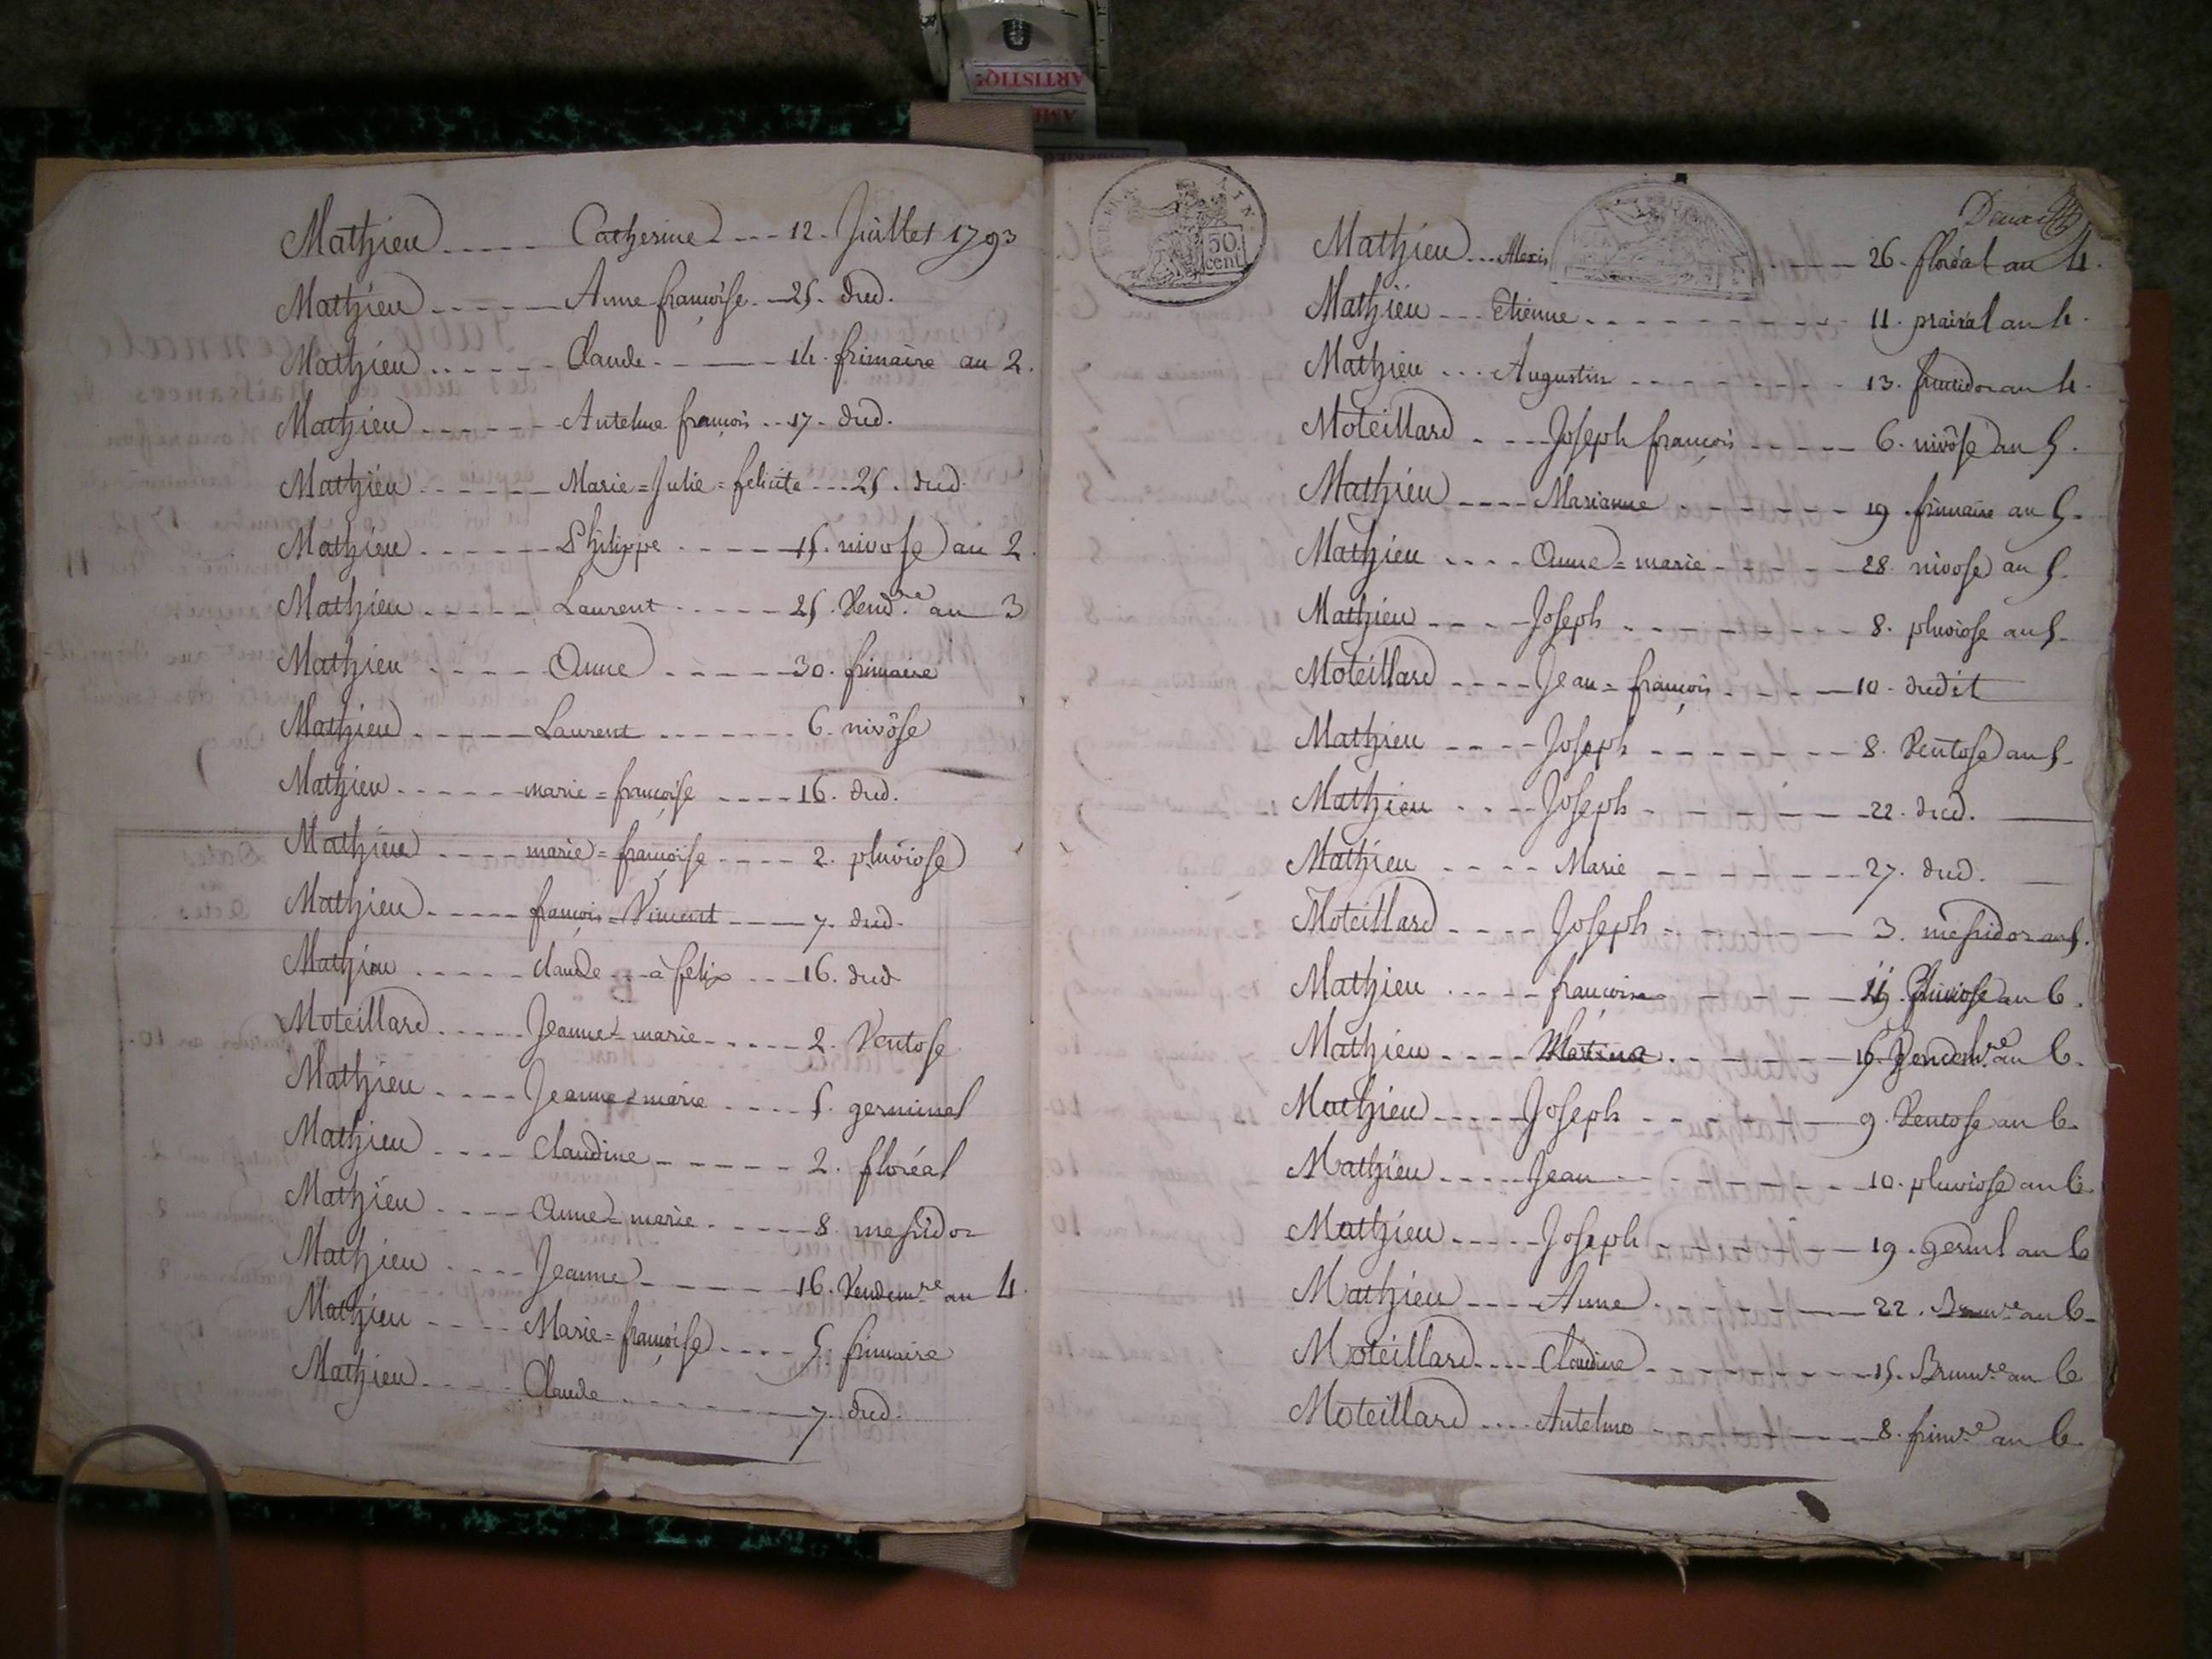 Mathieu ..... Catherine --- 12. Juillet 1793
Mathieu ------ Anne françoise. -- 25. dud.
Mathieu ------ Claude ------ 14. frimaire an 2.
Mathieu ------ Antelme françois .. 17. dud.
Mathieu ------ Marie = Julie = felicite ... 25. dud.
Mathieu ------ Philippe ------ 15. nivose an 2
Mathieu ------ Laurent ------ 25. Vend.re an 3
Mathieu ------ Anne ------ 30. frimaire
Mathieu ------ Laurent ------ 6. nivôse
Mathieu ------ marie = françoise ---- 16. dud.
Mathieu ---- marie = françoise ---- 2. pluviose
Mathieu ----- françois = Vincent ---- 7. dud.
Mathieu ..... claude ... à felix ... 16. dud
Moteillard ..... Jeanne = marie ----- 2. Ventose
Mathieu ---- Jeanne = marie ---- 5. germinal
Mathieu ---- Claudine ------ 2. floréal
Mathieu ---- Anne = marie ------ 8. messidor
Mathieu ---- Jeanne ------ 16. Vendem.re an 4.
Mathieu ---- Marie = françoise ---- 5. frimaire
Mathieu ---- Claude ------ 7. dud.
50
cent
Mathieu ... Alexis ---- 26. floréal an 4.
Mathieu --- Etienne -------- 11. prairal an 4.
Mathieu ... Augustin -------- 13. fructidor an 4.
Moteillard ---- Joseph françois ----- 6. nivôse an 5.
Mathieu ---- Marianne ------- 19. frimaire an 5.
Mathieu ---- Anne = marie ------ 28. nivose an 5.
Mathieu ---- Joseph -------- 8. pluviose an 5.
Moteillard ---- Jean = françois ---- 10. dudit
Mathieu ---- Joseph ------- 8. Ventose an 5.
Mathieu ---- Joseph ------- 22. dud.
Mathieu ---- Marie ------- 27. dud.
Moteillard ---- Joseph ------- 3. messidor an 5.
Mathieu ---- françoise ----- pluviose an 6.
Mathieu ---- ------- Vendem.re an 6.
Mathieu ---- Joseph ------- 9. Ventose an 6.
Mathieu ---- Jean -------- 10. pluviose an 6.
Mathieu ----- Joseph ------- 19. germl an 6
Mathieu ---- Anne ------- 22. Brum.re an 6.
Moteillard ---- Claudine -------- 15. Brum.re an 6
Moteillard .... Antelme -------- 8. frim.re an 6.
ARTISTIQ